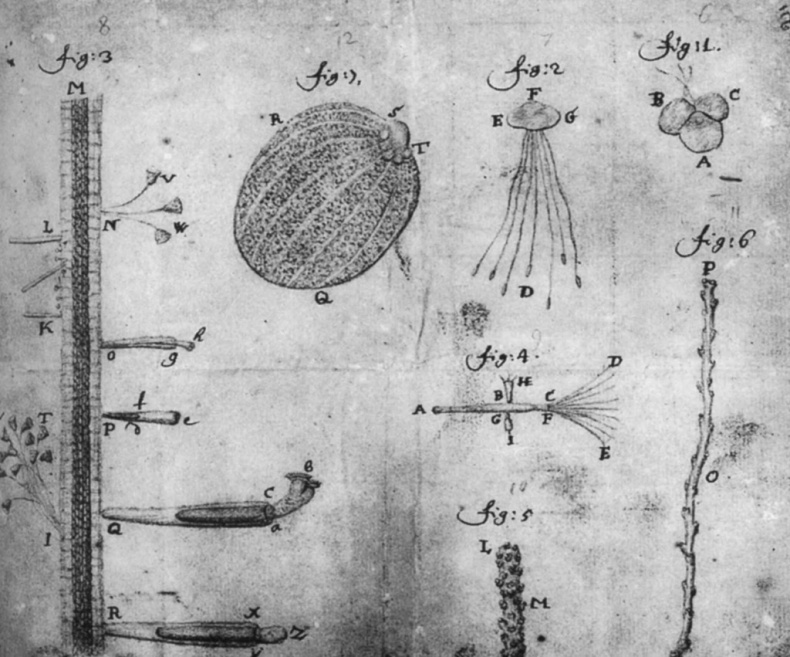 8
fig: 3
M
L
K
T
I
N
V
W
o
g
h
P
f
e
Q
C
B
a
R
X
Z
12
fig: 7.
R
S
T
Q
7
fig: 2
F
E
G
D
9
fig: 4.
A
B
H
G
I
C
F
D
E
10
fig: 5
L
M
6
fig: 1.
B
C
A
11
fig: 6
P
O